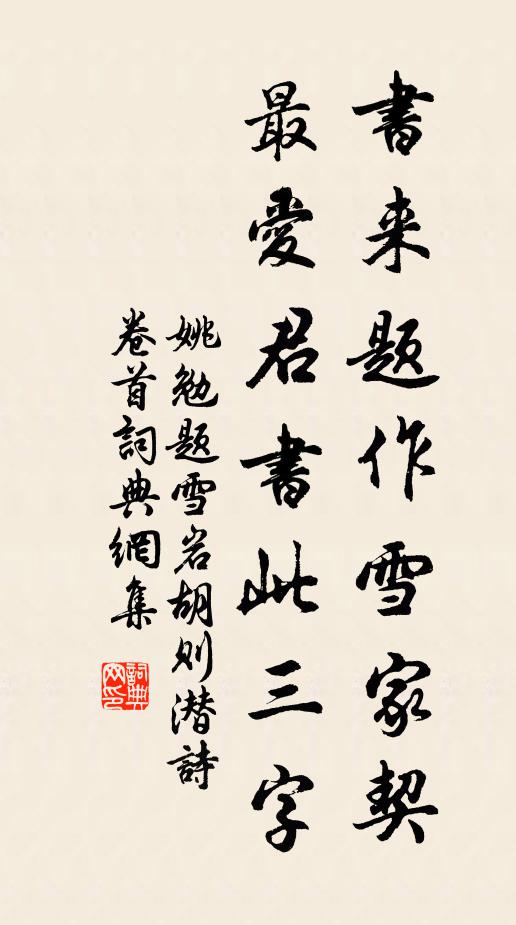 書来题作雪家契
最愛君書此三字
姚勉题雪岩胡则潜詩
卷首詞典網集
詞典網印